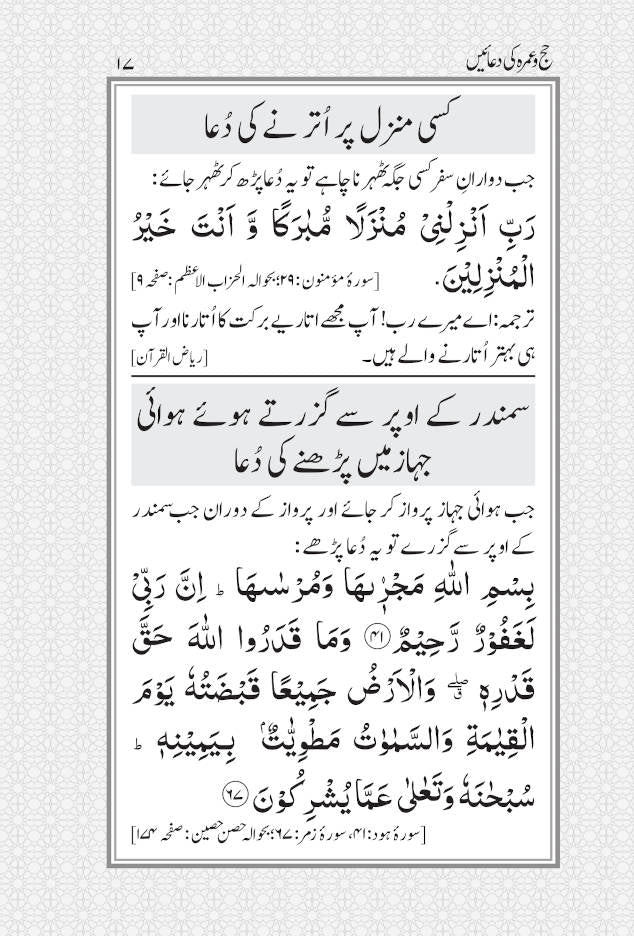 حج و عمرہ کی دعائیں ۱۷
کسی منزل پر اُترنے کی دُعا
جب دوارانِ سفر کسی جگہ ٹھہرنا چاہے تو یہ دُعا پڑھ کر ٹھہر جائے:
رَبِّ اَنْزِلْنِیْ مُنْزَلًا مُّبٰرَكًا وَّ اَنْتَ خَیْرُ
الْمُنْزِلِیْنَ. [سورۂ مؤمنون:۲۹؛ بحوالہ الحزاب الاعظم: صفحہ ۹]
ترجمہ: اے میرے رب! آپ مجھے اتاریے برکت کا اُتارنا اور آپ
ہی بہتر اُتارنے والے ہیں۔ [ریاض القرآن]
سمندر کے اوپر سے گزرتے ہوئے ہوائی
جہاز میں پڑھنے کی دُعا
جب ہوائی جہاز پرواز کر جائے اور پرواز کے دوران جب سمندر
کے اوپر سے گزرے تو یہ دُعا پڑھے:
بِسْمِ اللّٰهِ مَجْرٖىهَا وَمُرْسٰىهَا ؕ اِنَّ رَبِّیْ
لَغَفُوْرٌ رَّحِیْمٌ ۴۱ وَمَا قَدَرُوا اللّٰهَ حَقَّ
قَدْرِهٖ ۖۗ وَالْاَرْضُ جَمِیْعًا قَبْضَتُهٗ یَوْمَ
الْقِیٰمَةِ وَالسَّمٰوٰتُ مَطْوِیّٰتٌۢ بِیَمِیْنِهٖ ؕ
سُبْحٰنَهٗ وَتَعٰلٰی عَمَّا یُشْرِكُوْنَ ۶۷
[سورۂ ہود:۴۱، سورۂ زمر:۶۷؛ بحوالہ حصن حصین: صفحہ ۱۷۴]